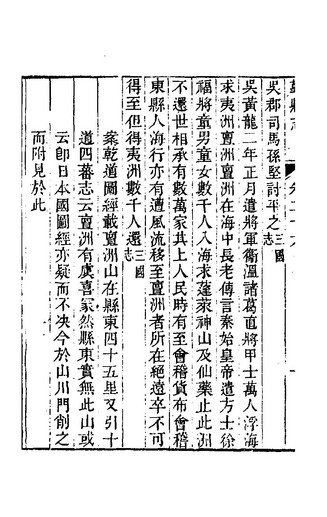 吳郡司馬孫堅討平之三國志
吳黃龍二年正月遣將軍衞溫諸葛直將甲士萬人浮海
求夷洲亶洲亶洲在海中長老傳言秦始皇帝遣方士徐
福將童男童女數千人入海求蓬萊神山及仙藥止此洲
不還世相承有數萬家其上人民時有至會稽貨布會稽
東縣人海行亦有遭風流移至亶洲者所在絕遠卒不可
得至但得夷洲數千人還三國志
案乾道圖經載亶洲山在縣東四十五里又引十
道四蕃志云亶洲有虞喜冢然縣東實無此山或
云卽日本國圖經亦疑而不決今於山川門削之
而附見於此